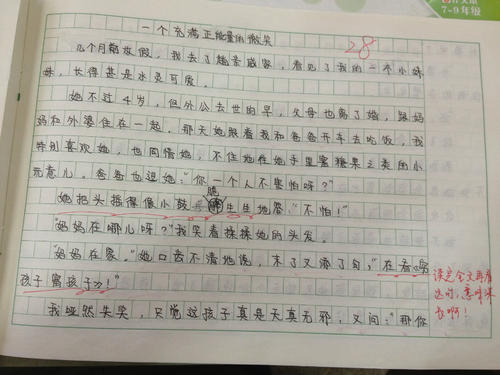 7-9年级
一个充满正能量的微笑
28
几个月前放假，我去了趟亲戚家，看见了我的一个小妹
妹，长得甚是水灵可爱。
她不过4岁，但外公去世的早，父母也离了婚，跟妈
妈和外婆住在一起。那天她跟着我和爸爸开车去吃饭，我
特别喜欢她，也同情她，不住地往她手里塞糖果之类的小
玩意儿。爸爸也逗她："你一个人不害怕呀？"
她把头摇得像小鼓 脆生生地答："不怕！"
"妈妈在哪儿呀？"我笑着揉揉她的头发。
"妈妈在家。"她口齿不清地说，末了又添了句，"在看
孩子写孩子力！"
读完全文再看
这句，意味深
长啊！
我哑然失笑，只觉这孩子真是天真无邪，又问："那你